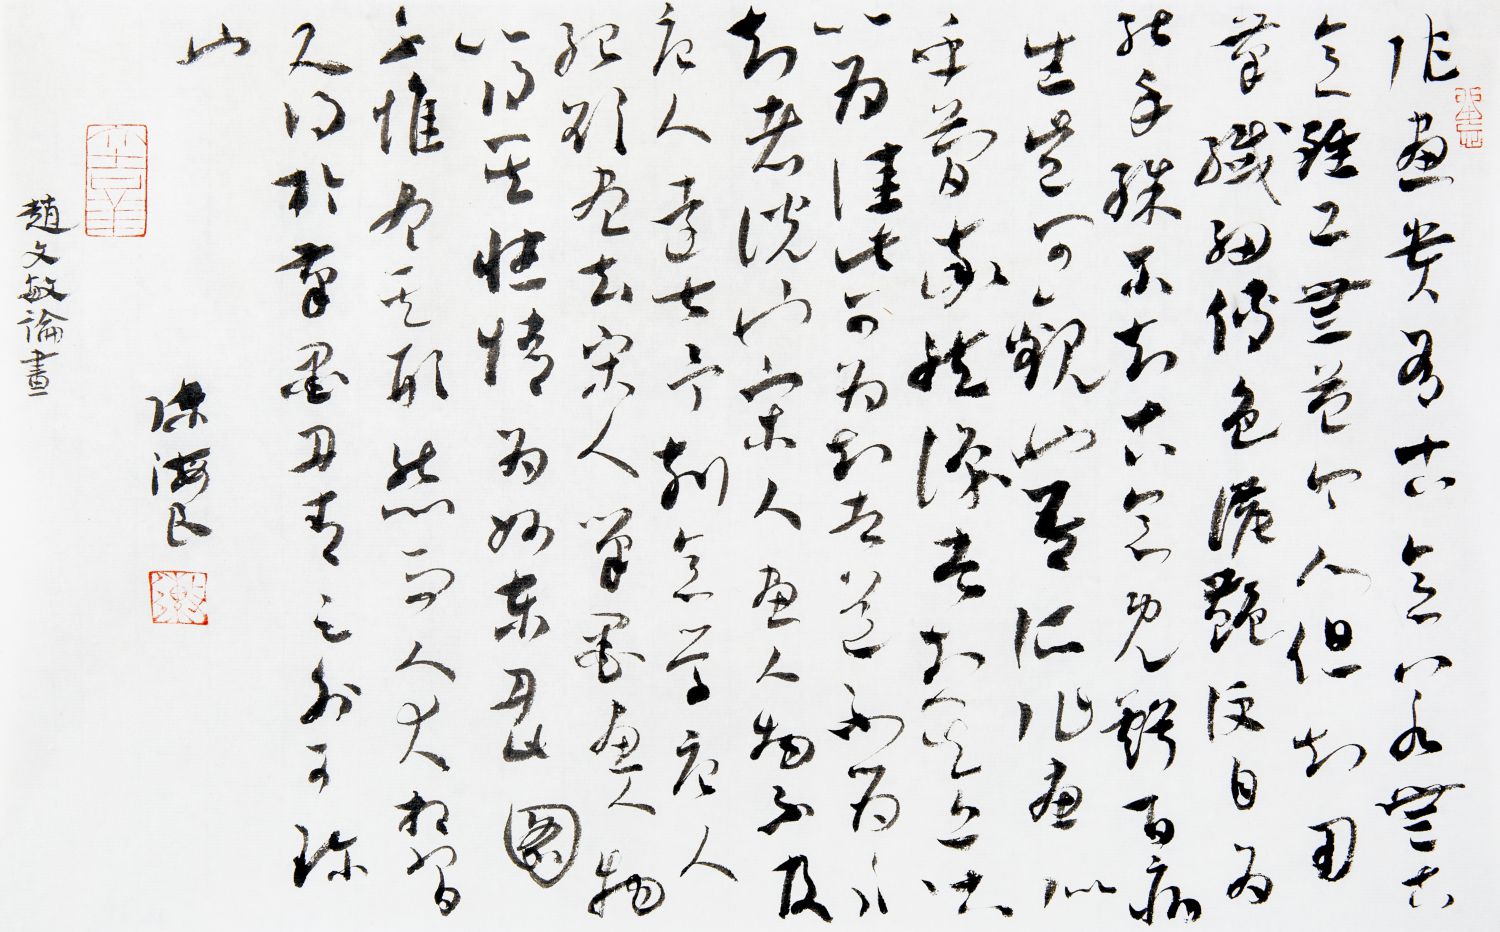 作畫貴有古意若無古
意雖工無益今人但知用
筆纖細傅色濃艷便自為
能手殊不知古意既虧百病
生豈可觀也吾所作畫似
乎簡率然識者知其近古故
以為佳此可為知者道不為不
知者說也宋人畫人物不及
唐人遠甚予刻意學唐人
殆欲盡去宋人筆墨畫人物
以得其性情為妙東丹此圖
不惟盡其形態而人犬相習
又得於筆墨丹青之外可珍
也
陳海良
趙文敏論畫